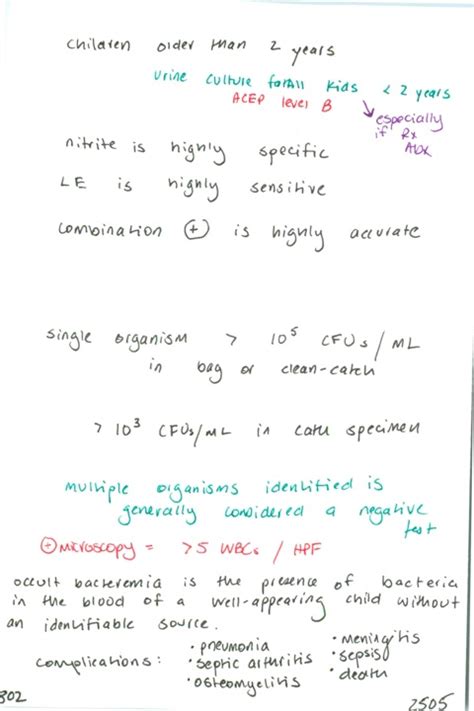 children older than 2 years
urine culture for all kids < 2 years
ACEP level B
especially
if Rx
Abx
nitrite is highly specific
LE is highly sensitive
combination (+) is highly accurate
single organism > 10⁵ CFUs/mL
in bag or clean-catch
> 10³ CFUs/mL in cath specimen
multiple organisms identified is
generally considered a negative
test
(+) microscopy = >5 WBCs / HPF
occult bacteremia is the presence of bacteria
in the blood of a well-appearing child without
an identifiable source.
complications: • pneumonia • meningitis
• septic arthritis • sepsis
• osteomyelitis • death
302 2505